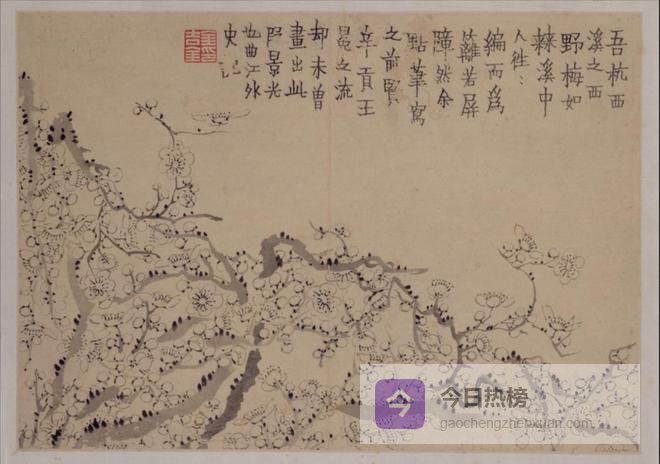 吾杭西
溪之西
野梅如
棘溪中
人往〻
編而為
籬若屏
障然余
點筆寫
之前賢
辛貢王
冕之流
却未曾
畫出此
段景光
也曲江外
史記
今
今日热榜
gaochengzhenxuan.com